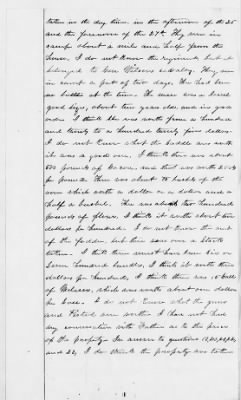 taken in the day time in the afternoon of the 25
and the forenoon of the 27th. They were in
camp about a mile and half from the
house. I do not know the regiment but it
belonged to Gen Wilsons cavalry. They were
in camp a part of two days. She had been
no battle at the time. The mare was a bard
good size, about ten years old and in good
order. I think she was worth from a hundred
and twenty to a hundred twenty five dollars.
I do not know what the saddle was worth
it was a good one. I think there was about
two pounds of bacon, and that was worth
per pound. There was about bushels of the
corn which worth a dollar or a dollar and a
half a bushel. There was about two hundred
pounds of flour. I think it worth about ten
dollars per hundred. I do not know the amt
of the fodder, but there was over a Stack
taken. I think there must have been five or
Seven hundred bundles, I think it worth two
dollars per hundred, I think there was 15 bbls
of Molasses, which was worth about one dollar
per I do not know what the guns
and Pistol are worth. I have not had
any conversation with Father as to the price
of the property. In answer to questions
and 22, I do think the property was taken